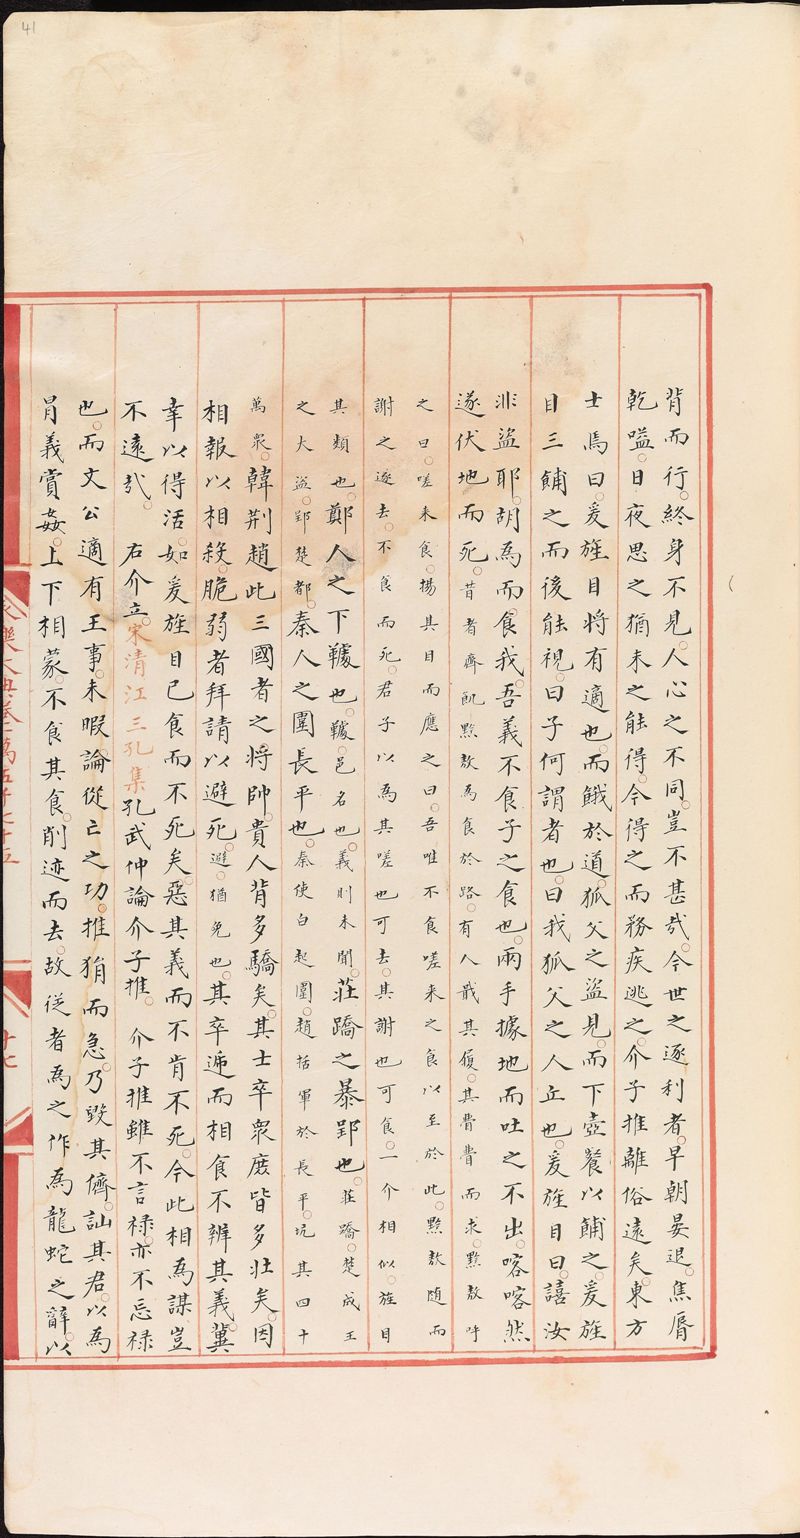 41
背而行。終身不見。人心之不同。豈不甚㢤。今世之逐利者。早朝晏退。焦脣
乾嗌。日夜思之猶未之能得。今得之而務疾逃之。介子推離俗遠矣。東方
士焉曰。爰旌目將有適也。而餓於道。狐父之盜見。而下壺餐以餔之。爰旌
目三餔之而後能視。曰子何謂者也。曰我狐父之人丘也。爰旌目曰。譆汝
非盜耶。胡為而食我。吾義不食子之食也。兩手據地而吐之不出。喀喀然
遂伏地而死。昔者齊飢黔敖為食於路。有人戢其履。其費費而來。黔敖呼
之曰。嗟來食。揚其目而應之曰。吾唯不食嗟來之食以至於此。黔敖随而
謝之遂去。不食而死。君子以為其嗟也可去。其謝也可食。一介相似。旌目
其類也。鄭人之下䩜也。䩜。邑名也。義則未聞。莊蹻之暴郢也。莊蹻。楚成王
之大盜。郢楚都。秦人之圍長平也。秦使白起圍。趙括軍於長平。坑其四十
萬衆。韓荆趙此三國者之將帥。貴人背多驕矣。其士卒衆庻皆多壮矣。因
相報以相殺。脆弱者拜請以避死。避。猶免也。其卒遍而相食不辨其義。冀
幸以得活。如爰旌目已食而不死矣。惡其義而不肯不死。今此相為謀豈
不遠㢤。 右介立。宋清江三孔集孔武仲論介子推。 介子推雖不言禄。亦不忘禄
也。而文公適有王事。未暇論從亡之功。推狷而急。乃毀其儕。訕其君。以為
冐義賞姦。上下相蒙。不食其食。削迹而去。故従者為之作為龍蛇之辭。以
永樂大典卷二萬五千七十五
十七